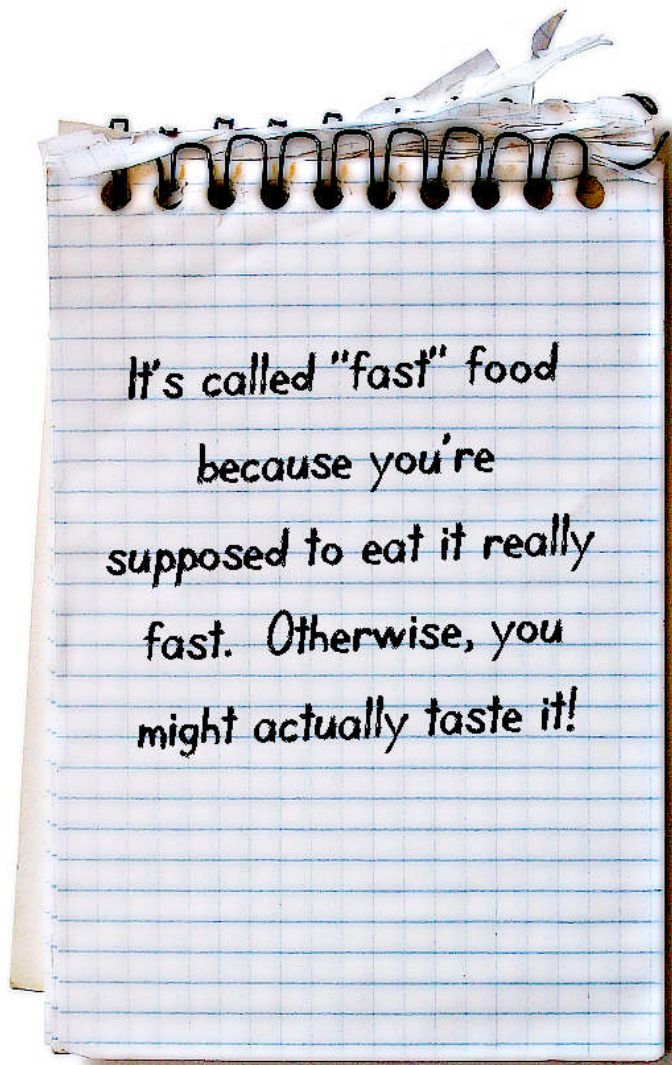 It's called "fast" food
because you're
supposed to eat it really
fast. Otherwise, you
might actually taste it!